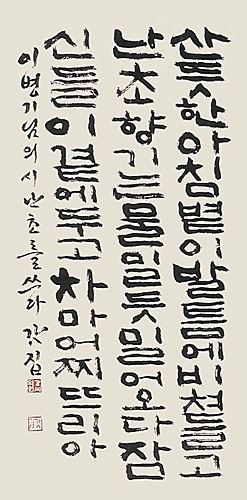 산듯한아침볕이발틈에비쳐들고
난초향기는물밀듯밀어오다잠
신들이곁에두고차마어찌뜨리아
이병기님의시난초를쓰다